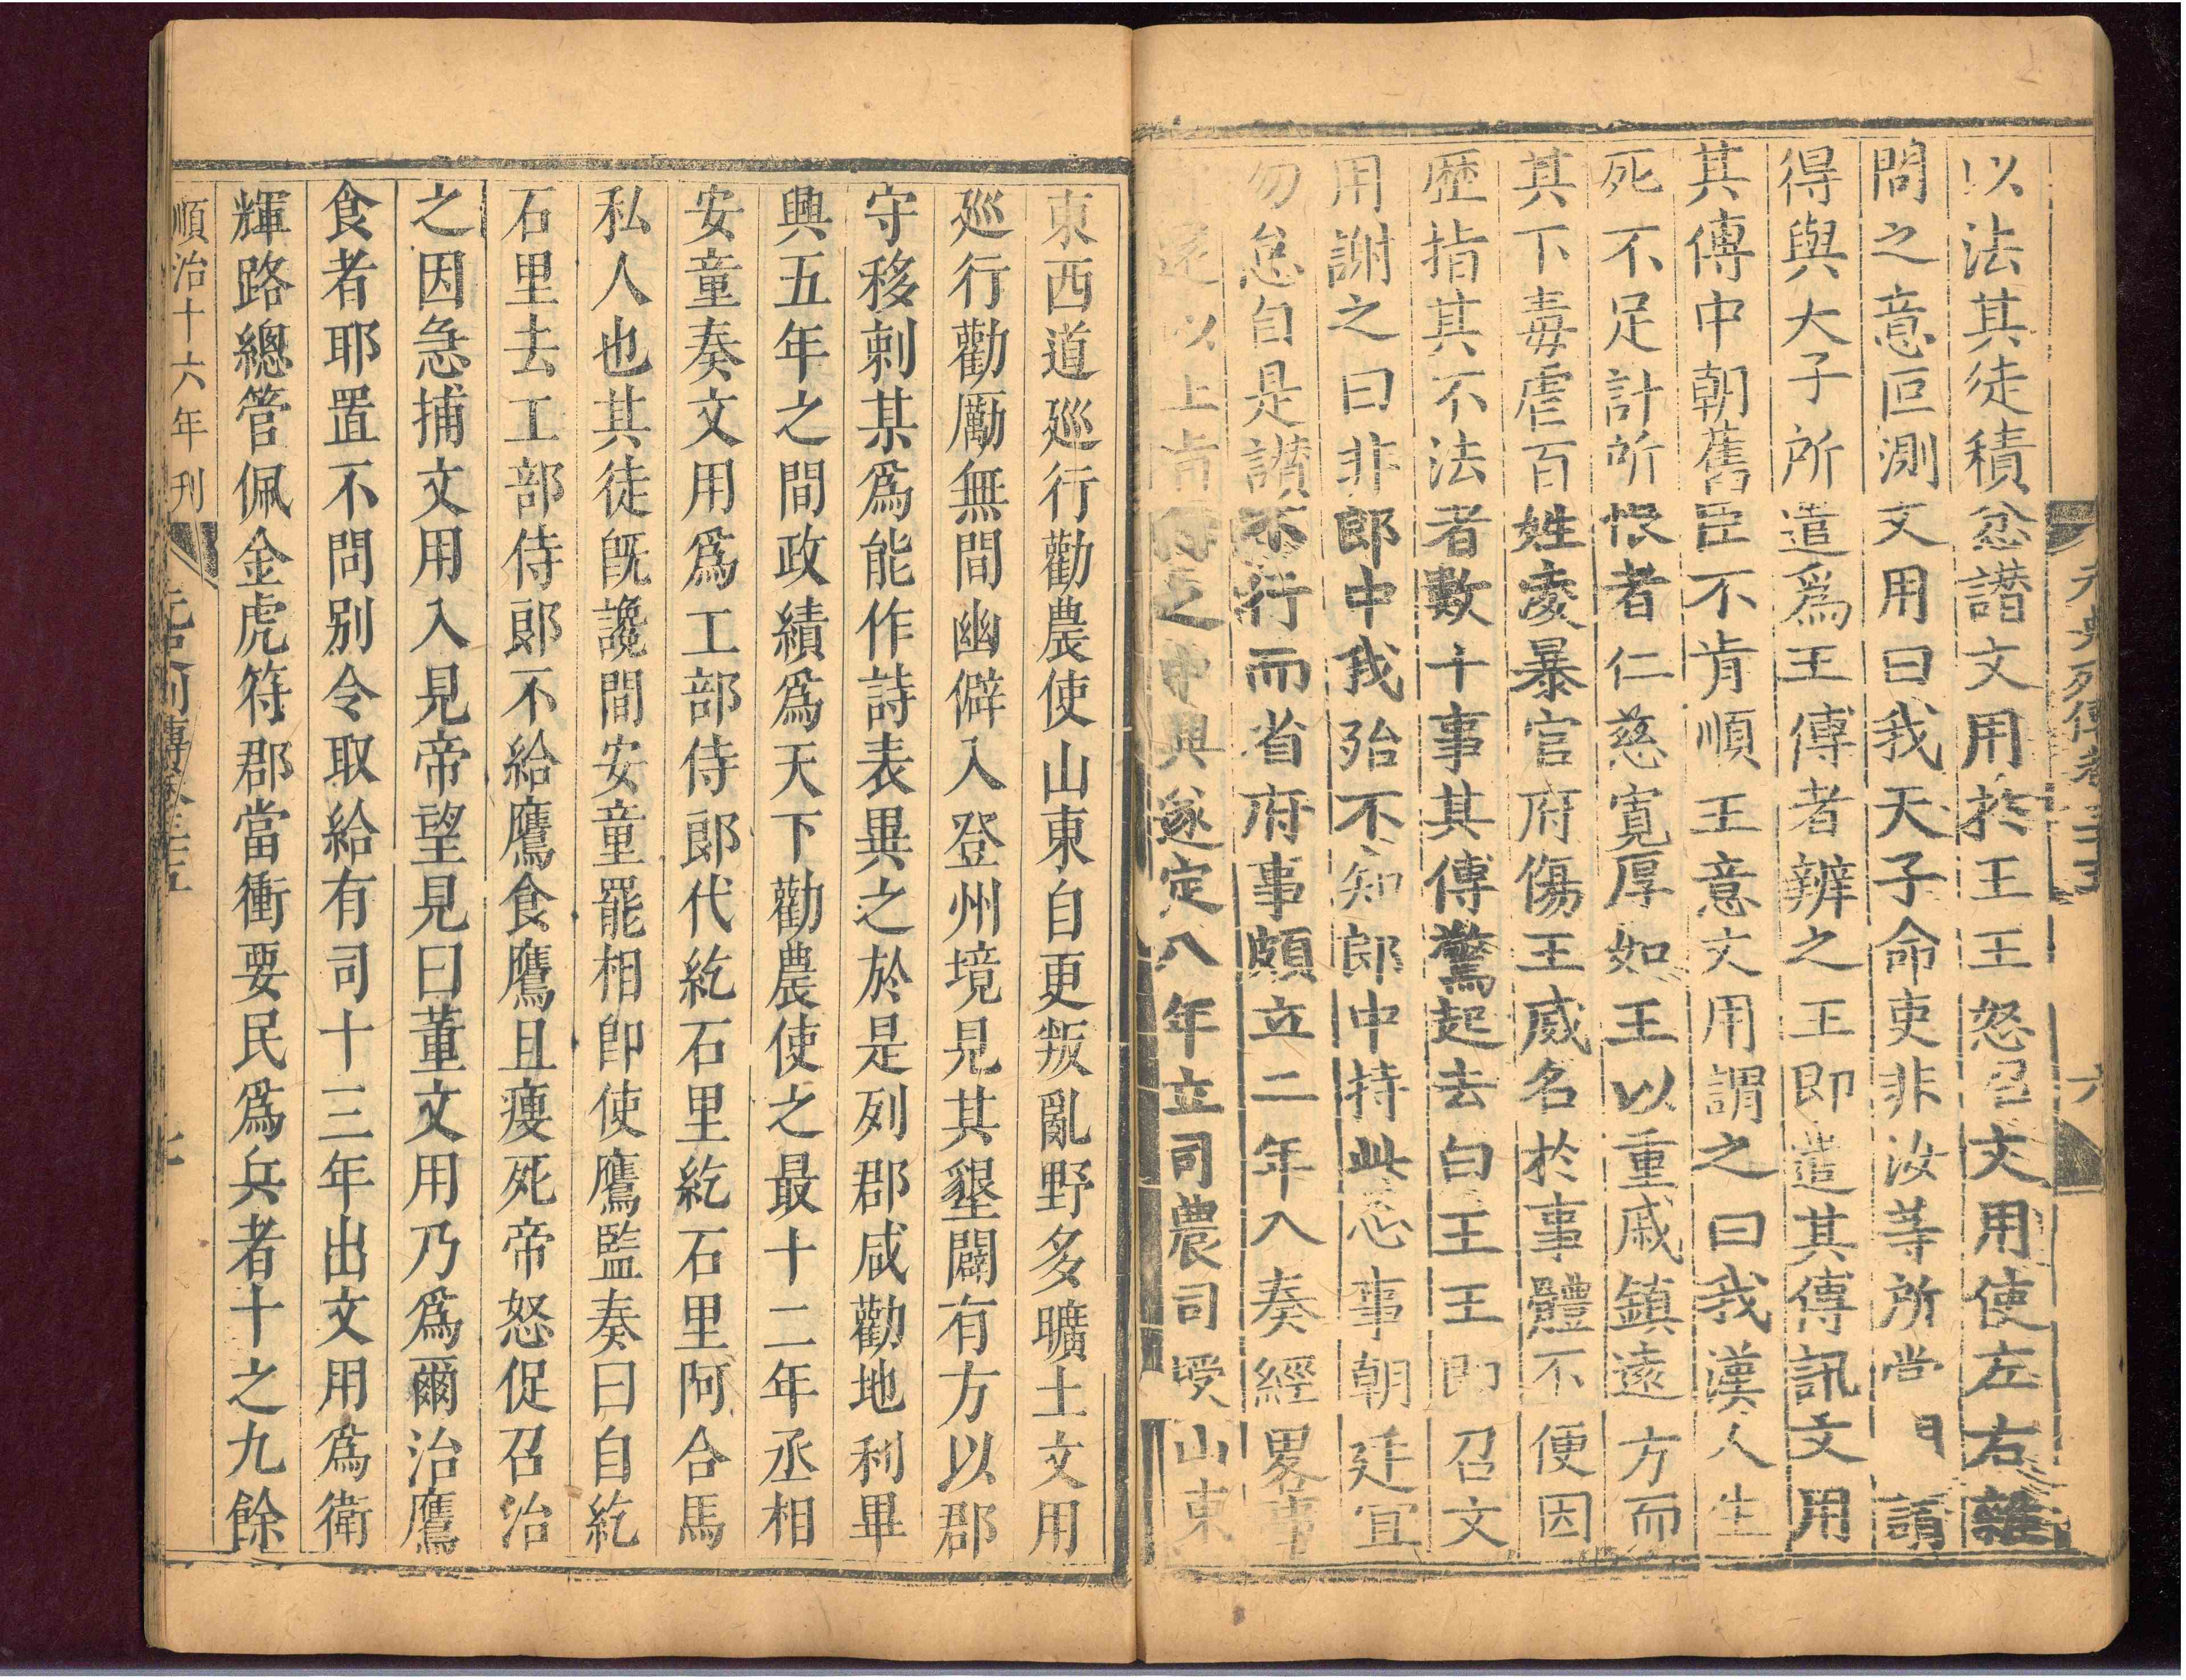 以法其徒積忿譖文用於王王怒召文用使左右雜
問之意叵測文用曰我天子命吏非汝等所當問請
得與大子所遣爲王傅者辨之王即遣其傅訊文用
其傅中朝舊臣不肯順王意文用謂之曰我漢人生
死不足計所恨者仁慈寬厚如王以重戚鎮遠方而
其下毒虐百姓凌暴官府傷王威名於事體不便因
歷指其不法者數十事其傅驚起去白王王即召文
用謝之曰非郎中我殆不知郎中持此心事朝廷宜
勿怠自是譖不行而省府事頗立二年入奏經畧事
還以上旨行之中興遂定八年立司農司授山東
元史列傳卷三十五 六
東西道廵行勸農使山東自更叛亂野多曠土文用
廵行勸勵無間幽僻入登州境見其墾闢有方以郡
守移剌某爲能作詩表異之於是列郡咸勸地利畢
興五年之間政績爲天下勸農使之最十二年丞相
安童奏文用爲工部侍郎代紇石里紇石里阿合馬
私人也其徒旣讒間安童罷相卽使鷹監奏曰自紇
石里去工部侍郎不給鷹食鷹且瘦死帝怒促召治
之因急捕文用入見帝望見曰董文用乃爲爾治鷹
食者耶置不問別令取給有司十三年出文用爲衛
輝路總管佩金虎符郡當衝要民爲兵者十之九餘
順治十六年刊 元史列傳卷三十五 七